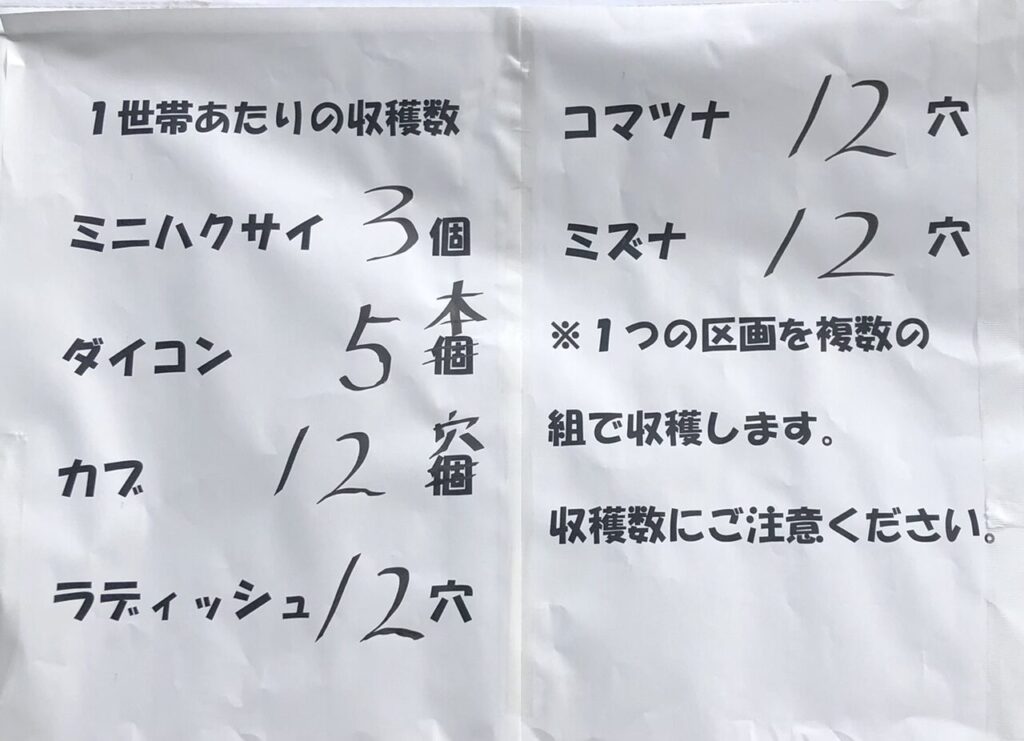 １世帯あたりの収穫数
ミニハクサイ 3 個
ダイコン 5 本 個
カブ 12 穴 個
ラディッシュ 12 穴
コマツナ 12 穴
ミズナ 12 穴
※１つの区画を複数の
組で収穫します。
収穫数にご注意ください。